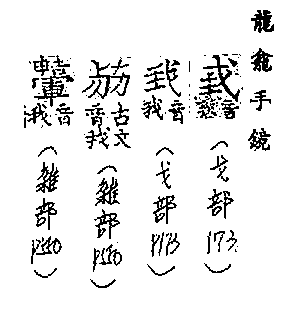 龍龕手鏡
音我
(戈部 173)
音我
(戈部 P173)
古文音我
(雜部 P550)
音我
(雜部 P550)